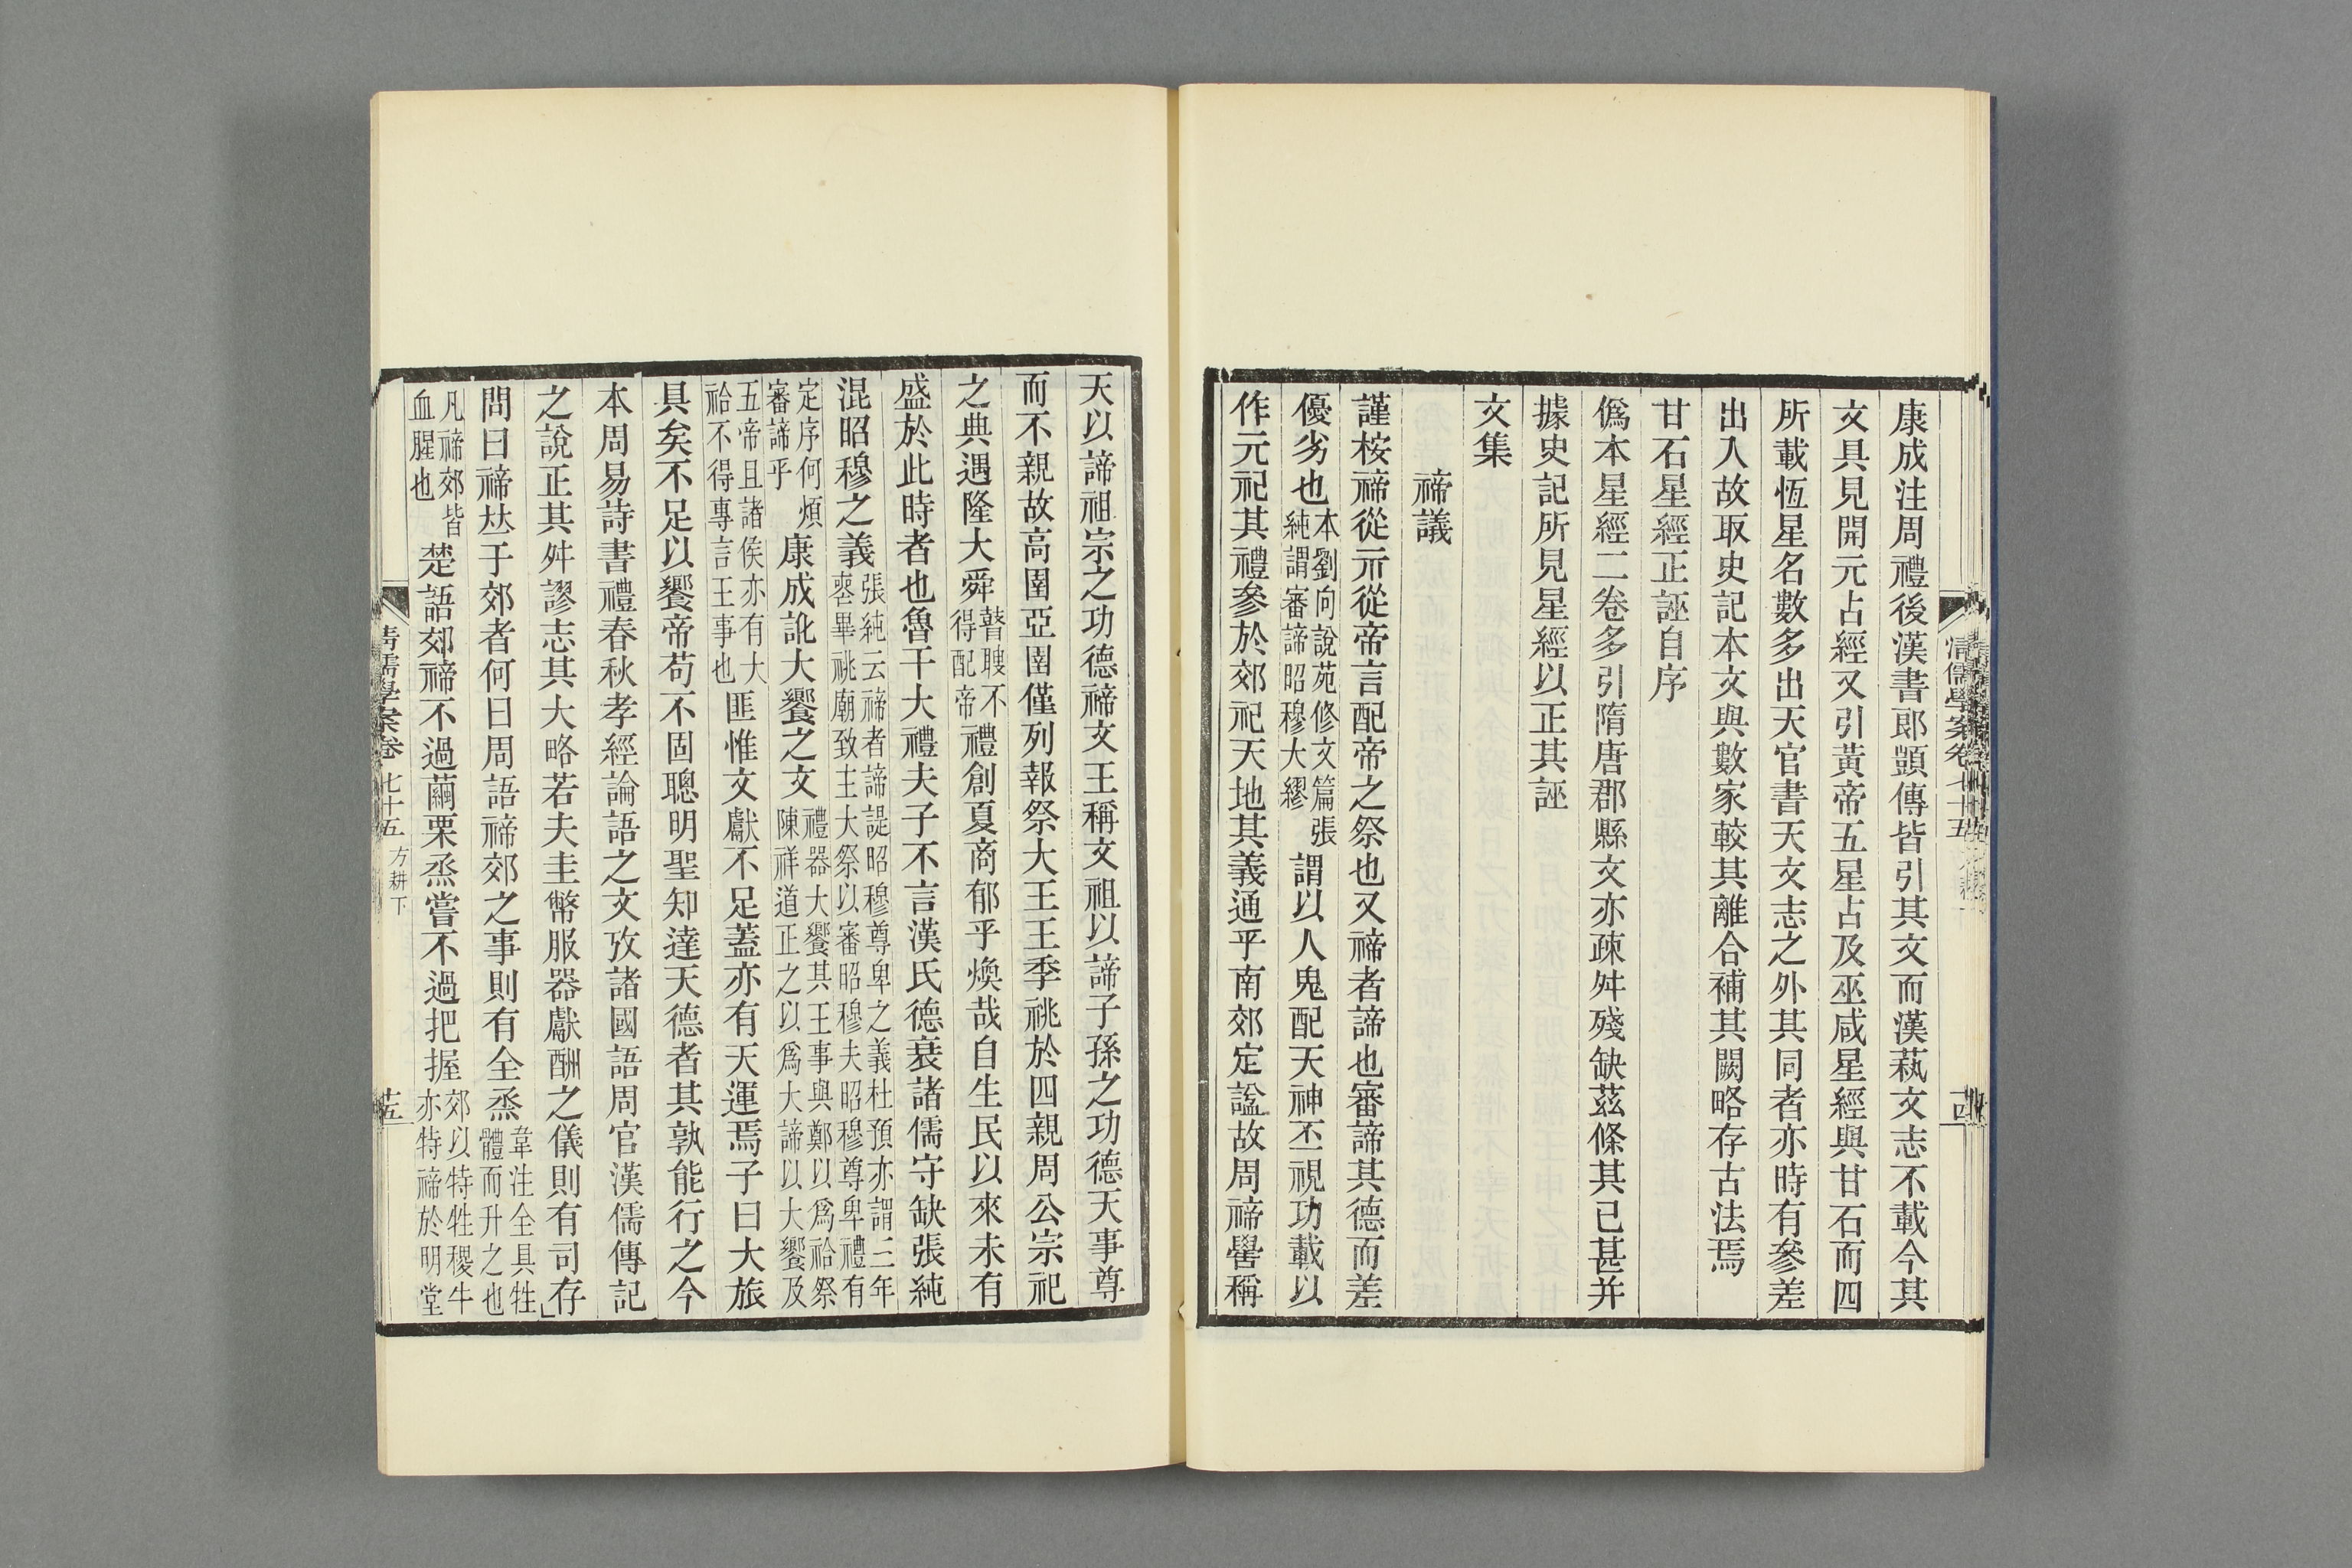 康成注周禮後漢書郎顗傳皆引其文而漢蓺文志不載今其
文具見開元占經又引黃帝五星占及巫咸星經與甘石而四
所載恆星名數多出天官書天文志之外其同者亦時有參差
出入故取史記本文與數家較其離合補其闕略存古法焉
甘石星經正誣自序
僞本星經二卷多引隋唐郡縣文亦疎舛殘缺茲條其已甚并
據史記所見星經以正其誣
文集
禘議
謹桉禘從示從帝言配帝之祭也又禘者諦也審諦其德而差
優劣也本劉向說苑修文篇張純謂審諦昭穆大繆謂以人鬼配天神丕視功載以
作元祀其禮參於郊祀天地其義通乎南郊定諡故周禘嚳稱
天以諦祖宗之功德禘文王稱文祖以諦子孫之功德天事尊
而不親故高圉亞圉僅列報祭大王王季祧於四親周公宗祀
之典遇隆大舜瞽瞍不得配帝禮創夏商郁乎煥哉自生民以來未有
盛於此時者也魯干大禮夫子不言漢氏德衰諸儒守缺張純
混昭穆之義張純云禘者諦諟昭穆尊卑之義杜預亦謂三年喪畢祧廟致主大祭以審昭穆夫昭穆尊卑禮有
定序何煩審諦乎康成訛大饗之文禮器大饗其王事與鄭以爲祫祭陳祥道正之以爲大諦以大饗及
五帝且諸侯亦有大祫不得專言王事也匪惟文獻不足蓋亦有天運焉子曰大旅
具矣不足以饗帝苟不固聰明聖知達天德者其孰能行之今
本周易詩書禮春秋孝經論語之文攷諸國語周官漢儒傳記
之說正其舛謬志其大略若夫圭幣服器獻酬之儀則有司存
問曰禘㚐于郊者何曰周語禘郊之事則有全烝韋注全具牲體而升之也
凡禘郊皆血腥也楚語郊禘不過繭栗烝嘗不過把握郊以特牲稷牛亦特禘於明堂
清儒學案卷七十五 方耕下
十五